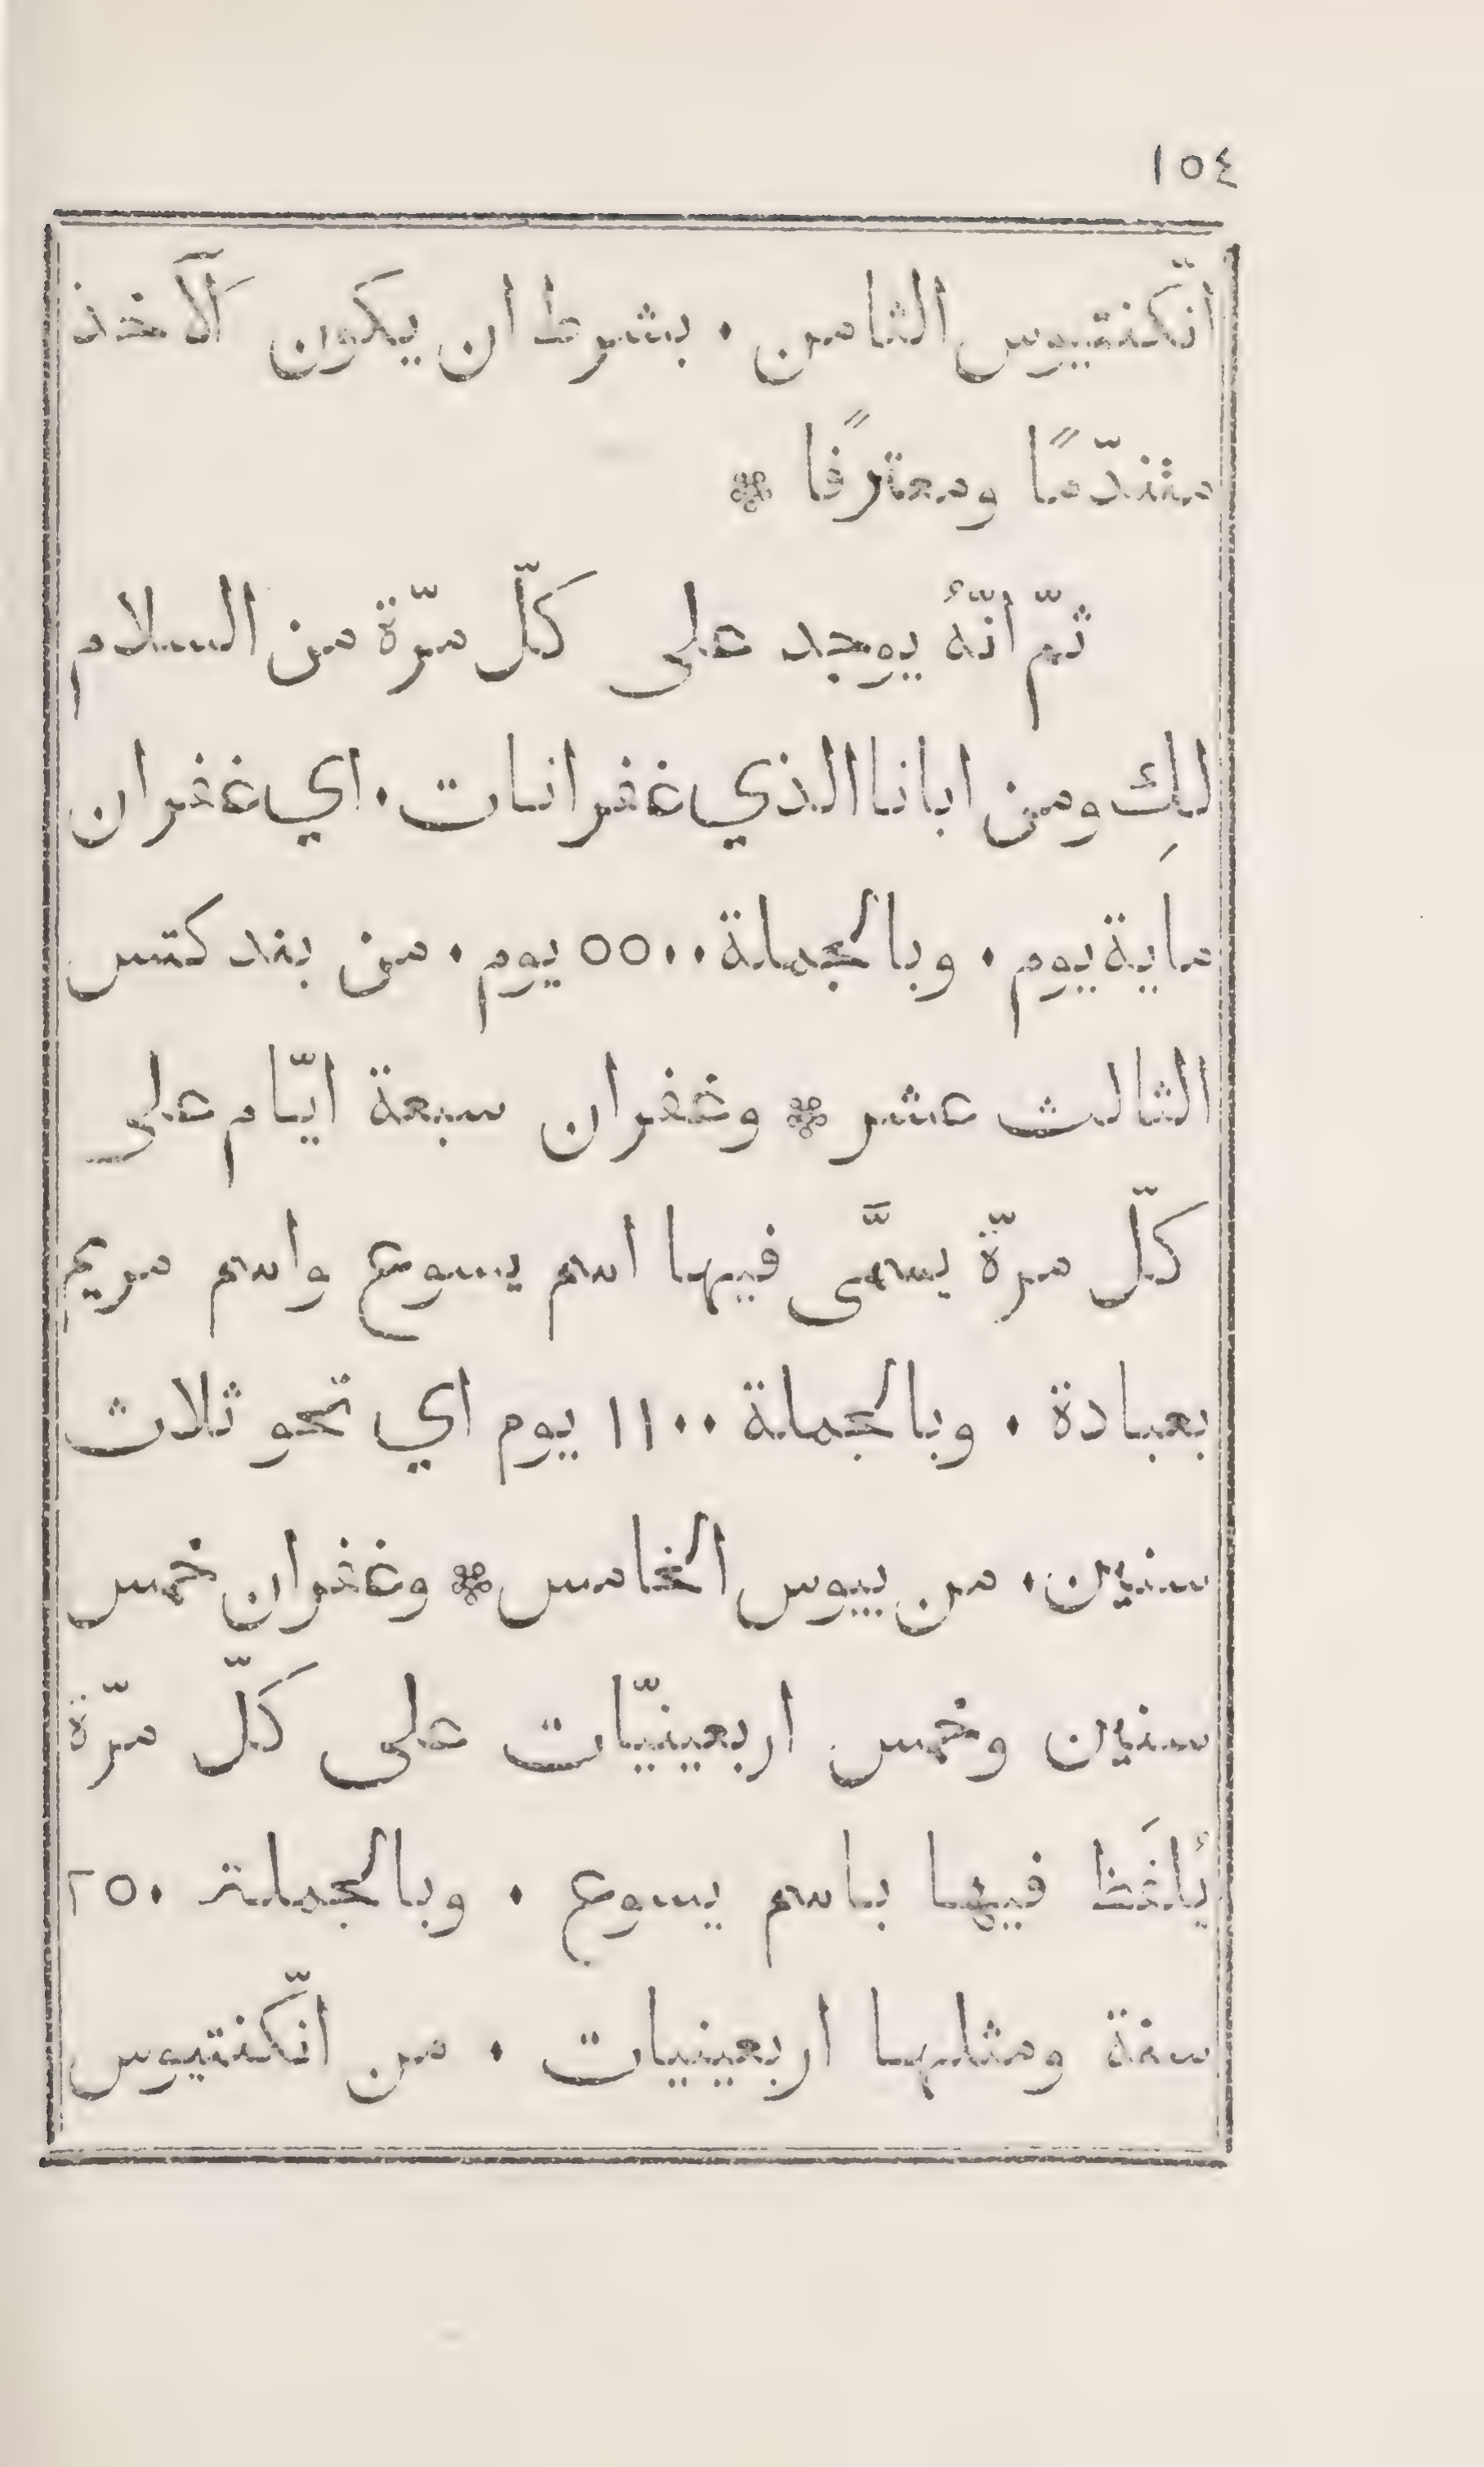 ١٥٤
انّكنتيوس الثامن ٠ بشرط ان يكون الآخذ
متندّمًا ومعترفًا ❊
ثمّ انّهُ يوجد على كلّ مرّة من السلام
لكِ ومن ابانا الذي غفرانات ٠ اي غفران
ماية يوم ٠ وبالجملة ٥٥٠٠ يوم ٠ من بندكتس
الثالث عشر ❊ وغفران سبعة ايّام على
كلّ مرّة يسمَّى فيها اسم يسوع واسم مريم
بعبادة ٠ وبالجملة ١١٠٠ يوم اي نحو ثلاث
سنين ٠ من بيوس الخامس ❊ وغفران خمس
سنين وخمس اربعينيّات على كلّ مرّة
يُلفَظ فيها باسم يسوع ٠ وبالجملة ٢٥٠
سنة ومثلها اربعينيات ٠ من انّكنتيوس